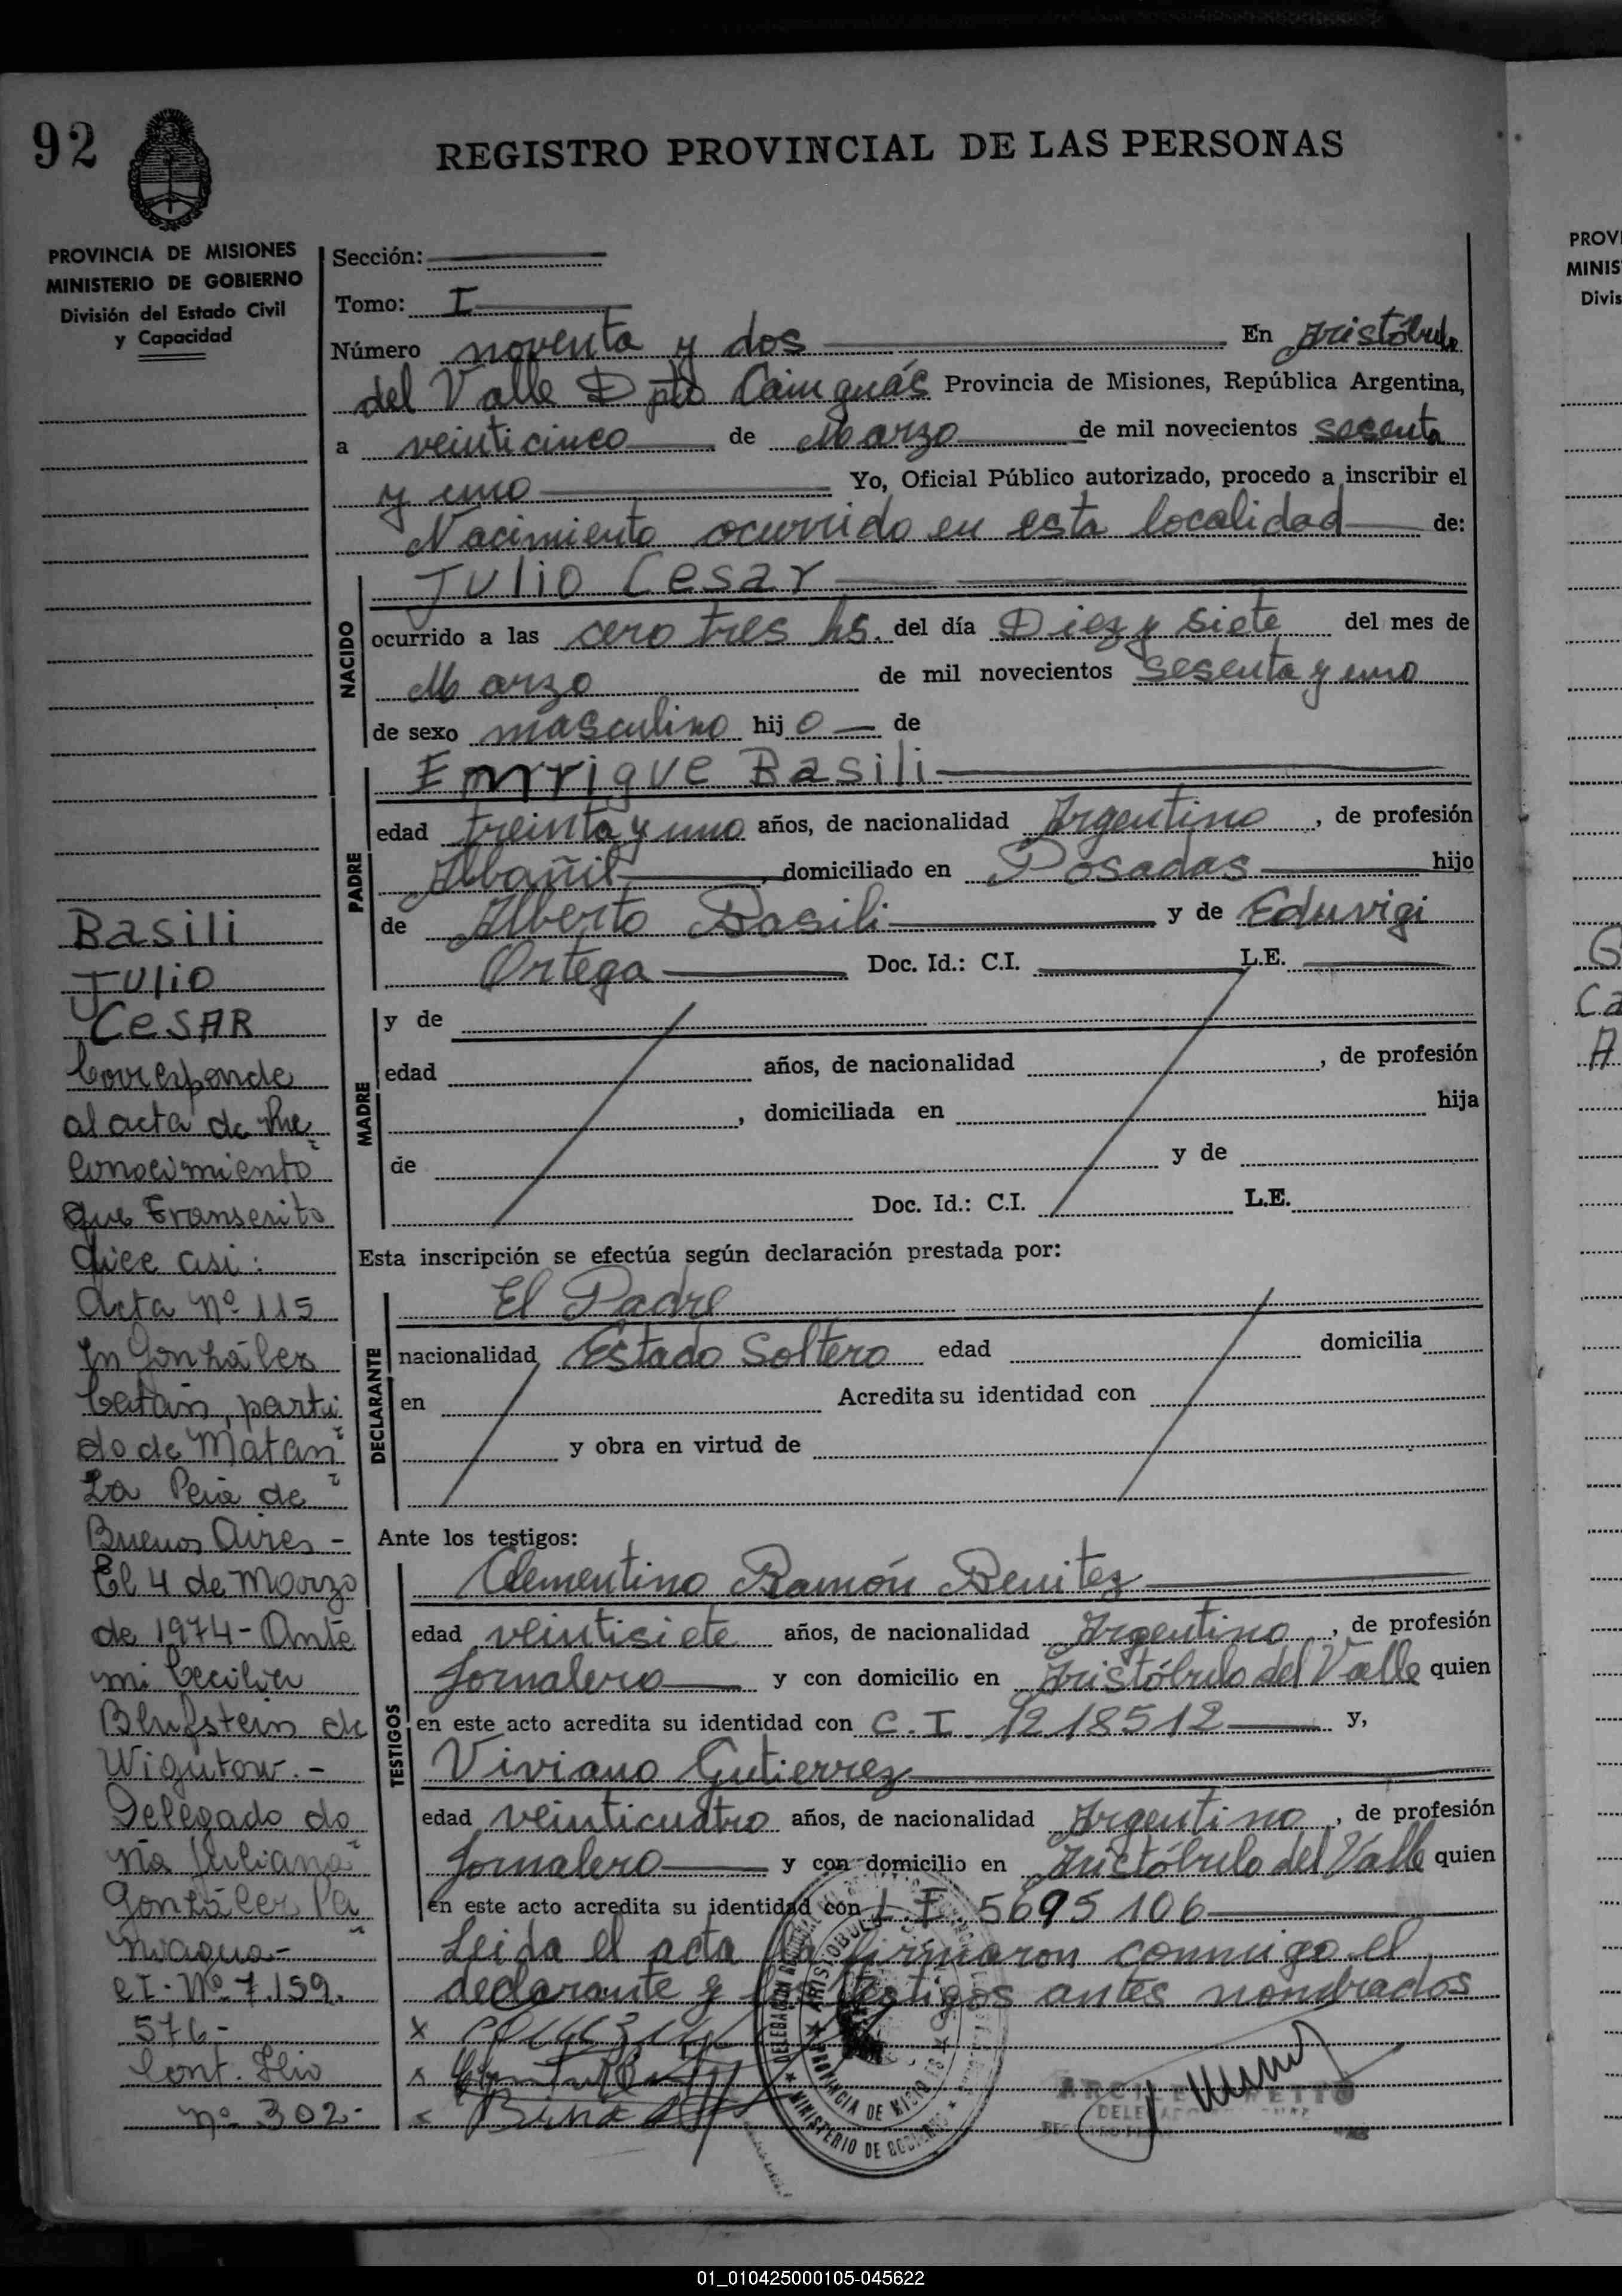 92
REGISTRO PROVINCIAL DE LAS PERSONAS
PROVINCIA DE MISIONES
MINISTERIO DE GOBIERNO
División del Estado Civil
y Capacidad
Sección:
Tomo: I
Número noventa y dos En Aristóbulo
del Valle Dpto Cainguás Provincia de Misiones, República Argentina,
a veinticinco de Marzo de mil novecientos sesenta
y uno Yo, Oficial Público autorizado, procedo a inscribir el
Nacimiento ocurrido en esta localidad de:
NACIDO
Julio Cesar
ocurrido a las cero tres hs. del día Diez y siete del mes de
Marzo de mil novecientos sesenta y uno
de sexo masculino hijo de
PADRE
Enrrique Basili
edad treinta y uno años, de nacionalidad Argentino, de profesión
Albañil, domiciliado en Posadas hijo
de Alberto Basili y de Eduvigi
Ortega Doc. Id.: C.I. L.E.
MADRE
y de
edad años, de nacionalidad , de profesión
, domiciliada en hija
de y de
Doc. Id.: C.I. L.E.
Esta inscripción se efectúa según declaración prestada por:
DECLARANTE
El Padre
nacionalidad Estado Soltero edad domicilia
en Acredita su identidad con
y obra en virtud de
Ante los testigos:
TESTIGOS
Clementino Ramón Benitez
edad veintisiete años, de nacionalidad Argentino, de profesión
Jornalero y con domicilio en Aristóbulo del Valle quien
en este acto acredita su identidad con C.I. 1218512 y,
Viviano Gutierrez
edad veinticuatro años, de nacionalidad Argentino, de profesión
Jornalero y con domicilio en Aristóbulo del Valle quien
en este acto acredita su identidad con L.E. 5695106
Leida el acta la firmaron conmigo el
declarante y los testigos antes nombrados
x
x
x
Basili
Julio
Cesar
Corresponde
al acta de Re
conocimiento
que transcrito
dice asi:
Acta Nº 115
En González
Catán, parti
do de Matan
za Pcia de
Buenos Aires -
El 4 de Marzo
de 1974 - Ante
mi Cecilia
de
Wigutow. -
Delegado do
ña Juliana
González Pa
niagua -
CI. Nº 7.159.
576 -
Cont. Flio
nº 302 -
MINISTERIO DE GOBIERNO
PROVINCIA DE MISIONES
PROV
MINIS
Divis
G
Ca
A
01_010425000105-045622